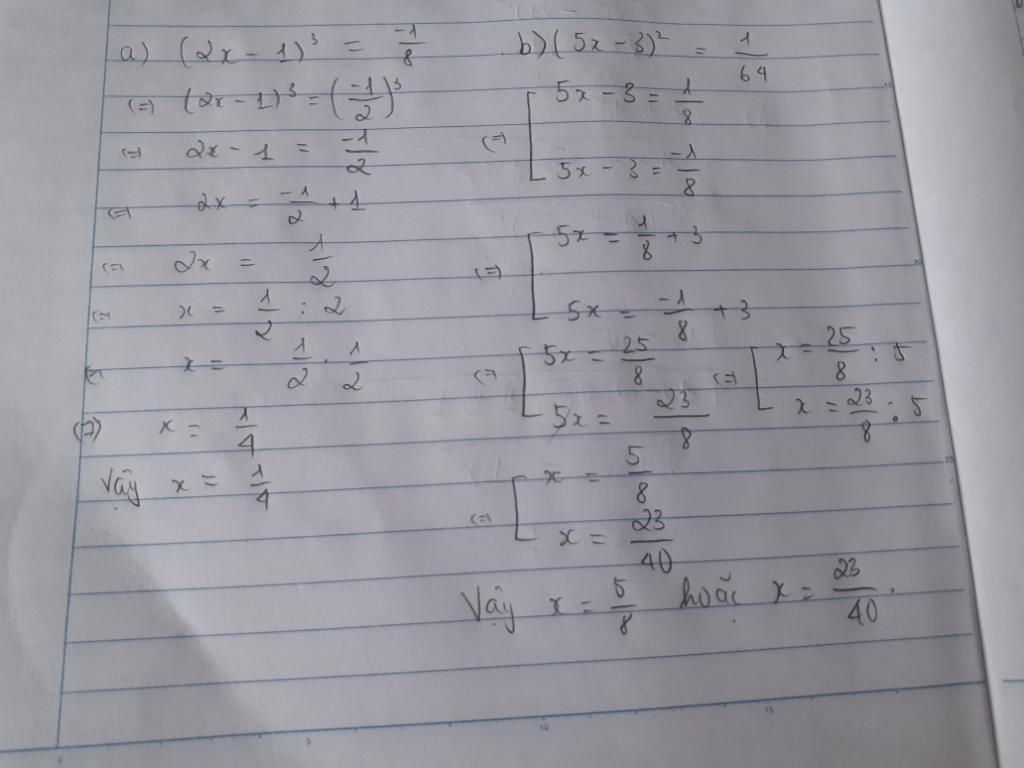 a) (2x - 1)³ = -1/8
(=) (2x - 1)³ = (-1/2)³
(=) 2x - 1 = -1/2
(=) 2x = -1/2 + 1
(=) 2x = 1/2
(=) x = 1/2 : 2
(=) x = 1/2 . 1/2
(=) x = 1/4
Vậy x = 1/4
b) (5x - 3)² = 1/64
(=) [ 5x - 3 = 1/8
5x - 3 = -1/8
(=) [ 5x = 1/8 + 3
5x = -1/8 + 3
(=) [ 5x = 25/8 (=) [ x = 25/8 : 5
5x = 23/8 x = 23/8 : 5
(=) [ x = 5/8
x = 23/40
Vậy x = 5/8 hoặc x = 23/40.
0 5 10 15